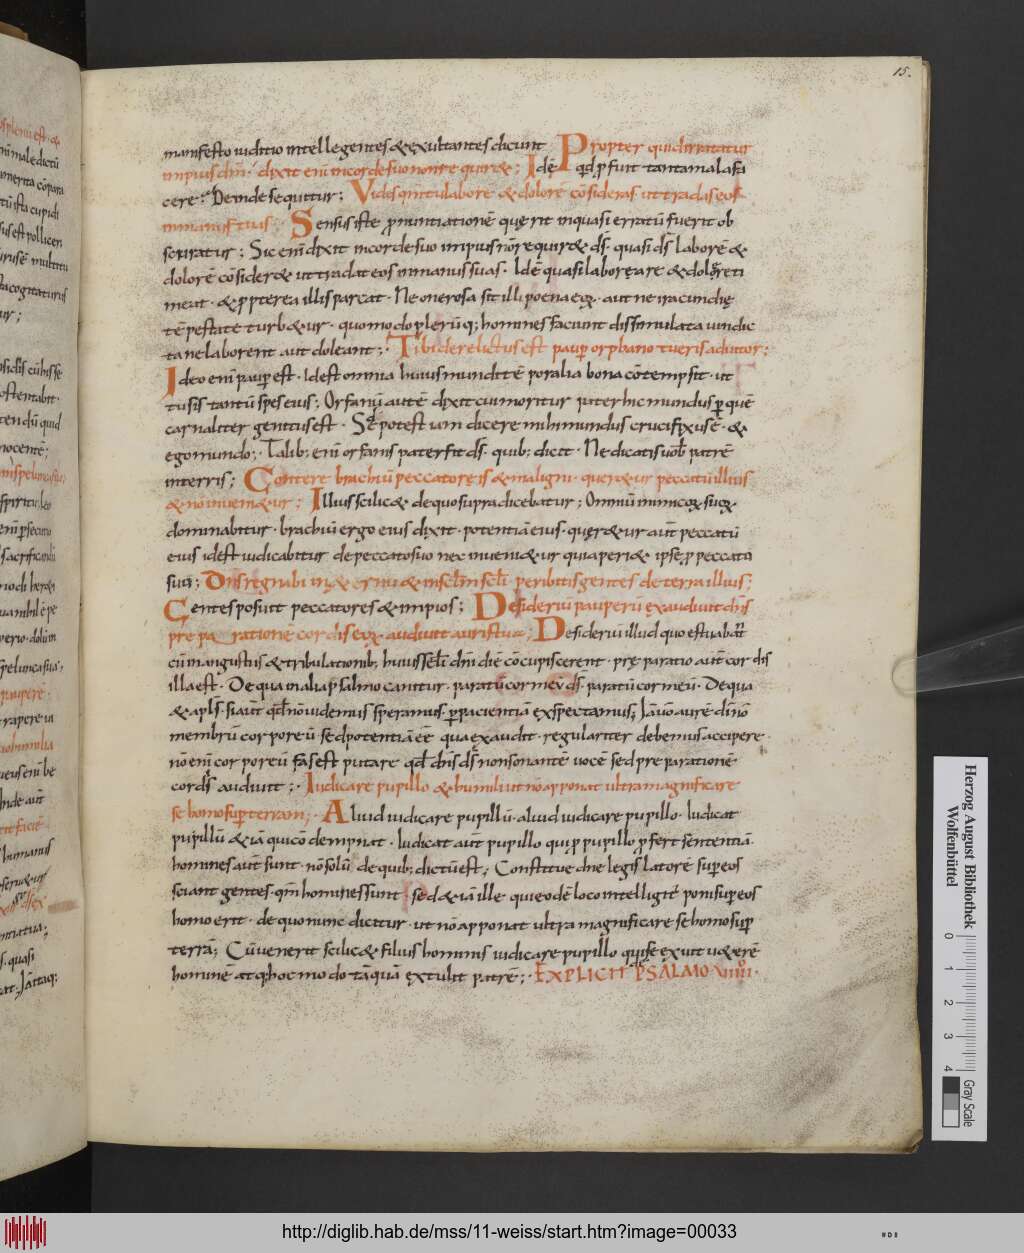 15.
manifesto iuditio intellegentes & exultantes dicunt Propter quid irritatur
impius dm̄· dixit eni᷈ incorde suo non re quir&; Idē qđ pfuit tanta mala fa
cere· Deinde sequitur; Vides qm̄ tu labore & dolore cōsideras ut tradas eos
inmanus tuas; Sensus iste pronuntiationē quęrit in quasi erratū fuerit ob
scuratur; Sic eni᷈ dixit incorde suo impius nōn requir& dš· quasi dš laborē &
dolorē cōsider& ut tradat eos inmanus suas· Idē quasi laborę are & dolorē ti
meat· & ppterea illis parcat· Ne onerosa sit illi poena eoꝝ· aut ne iracundię
tēpestate turb&ur· quomodo plerūq; homines faciunt dissimulata uindic
ta ne laborent aut doleant;· Tibi derelictus est pauper orphano tu eris adiutor;
Ideo eni᷈ pauper est· Idest omnia huius mundi tēporalia bona cōtempsit· ut
tu sis tantū spes eius; Orfanū autē dixit cui moritur pater hic mundus p quē
carnaliter genitus est· Sed potest iam dicere mihi mundus crucifixus ē· &
ego mundo;· Talib; eni᷈ orfanis pater fit dš· quib; dicit· Ne dicatis uob patrē
interris; Contere brachiū peccatoris & maligni· quer&ur peccatū illius
& nō inueni&ur; Illius scilic& de quo supra dicebatur; Omniū inimicoꝝ suoꝝ
dominabitur· brachiū ergo eius dixit· potentiā eius· quęr&ur aut peccatū
eius idest iudicabitur de peccato suo nec inueni&ur quia peri& ipse p peccatū
suū; Dn̄s regnabit in &ernū & in sēlm sēli peribitis gentes de terra illius;
Gentes posuit peccatores & impios; Desideriū pauperū exaudiuit dn̄s
pre paratione cordis eoꝝ audiuit auris tua; Desideriū illud quo estuabat
cū in angustiis & tribulationib; huius sēli dn̄i diē cōcupiscerent· prę paratio aut cordis
illa est· De qua in alia psalmo canitur· paratū cor meū dš· paratū cor meū· De qua
& apls· si aut qđ nō uidemus speramus· p pacientiā exspectamus; Iā uō aurē di nō
membrū corporeū· sed potentiā eē qua exaudit· regulariter debemus accipere·
nō eni᷈ corporeū fas est putare qđ dn̄s dš non sonantē uocē sed pre parationē
cordis audiuit;· Iudicare pupillo & humili ut no apponat ultra magnificare
se homo super terram;· Aliud iudicare pupillū· aliud iudicare pupillo· Iudicat
pupillū & iā qui cōdempnat· Iudicat aut pupillo qui p pupillo pfert sententiā·
homines aut sunt· nō solū de quib; dictū est; Constitue dne legis latorē super eos
sciant gentes· qm̄ homines sunt; sed & iā ille· qui eodē loco intelligit ponis super eos
homo erit· de quo nunc dicitur· ut nō apponat ultra magnificare se homo super
terrā; Cū uenerit scilic& filius hominis iudicare pupillo qui se exuit u&erē
hominē atq; hoc modo tāquā extulit patrē;· EXPLICIT PSALMO· VIIII·
Herzog August Bibliothek
Wolfenbüttel
0 1 2 3 4
Gray Scale
http://diglib.hab.de/mss/11-weiss/start.htm?image=00033